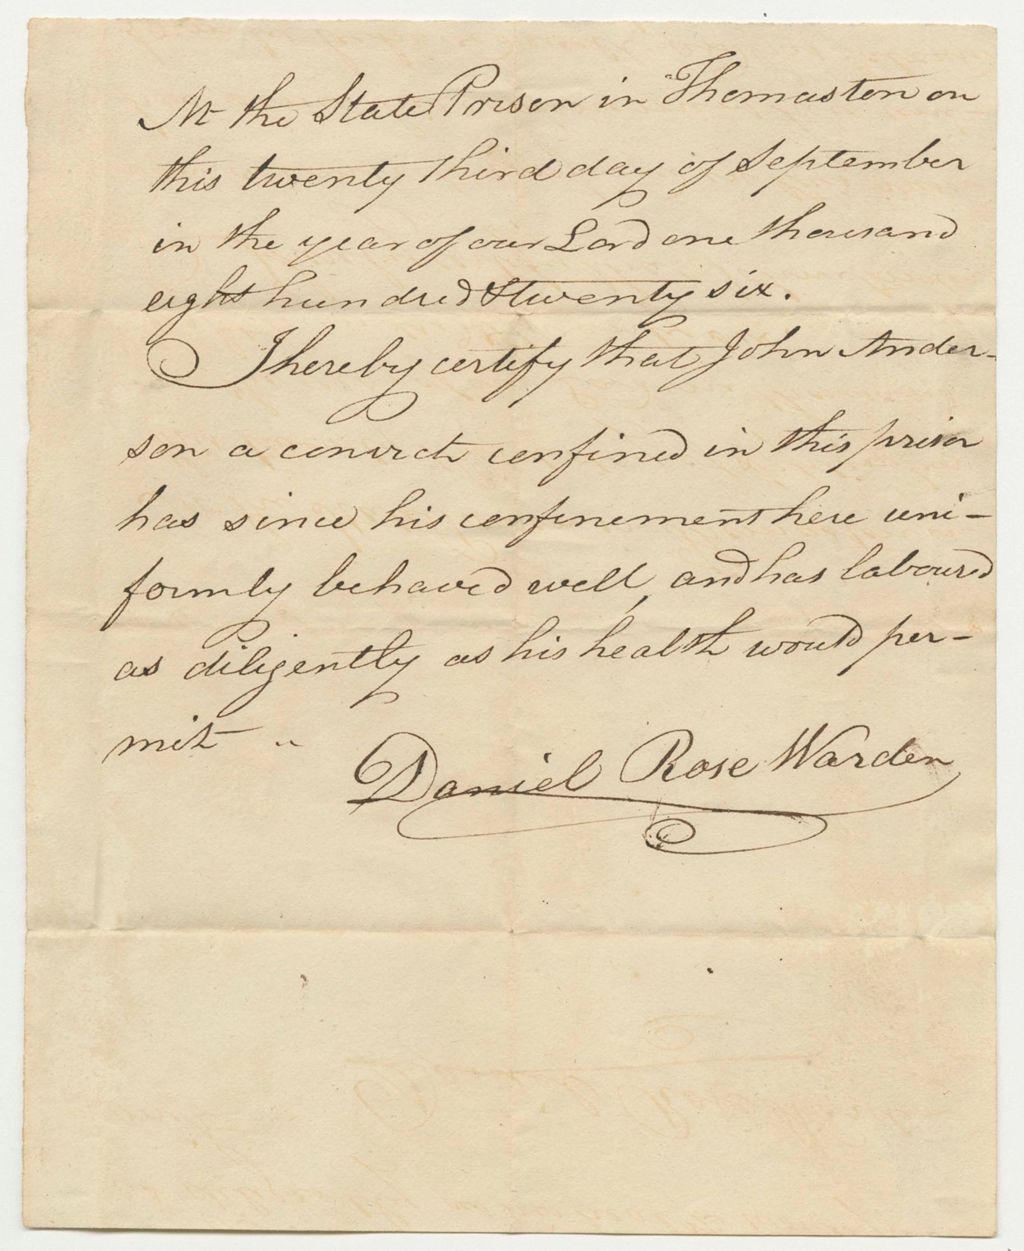 At the State Prison in Thomaston on
this twenty third day of September
in the year of our Lord one thousand
eight hundred & twenty six.
I hereby certify that John Ander-
son a convict confined in this prison
has since his confinement here uni-
formly behaved well, and has laboured
as diligently as his health would per-
mit
Daniel Rose Warden